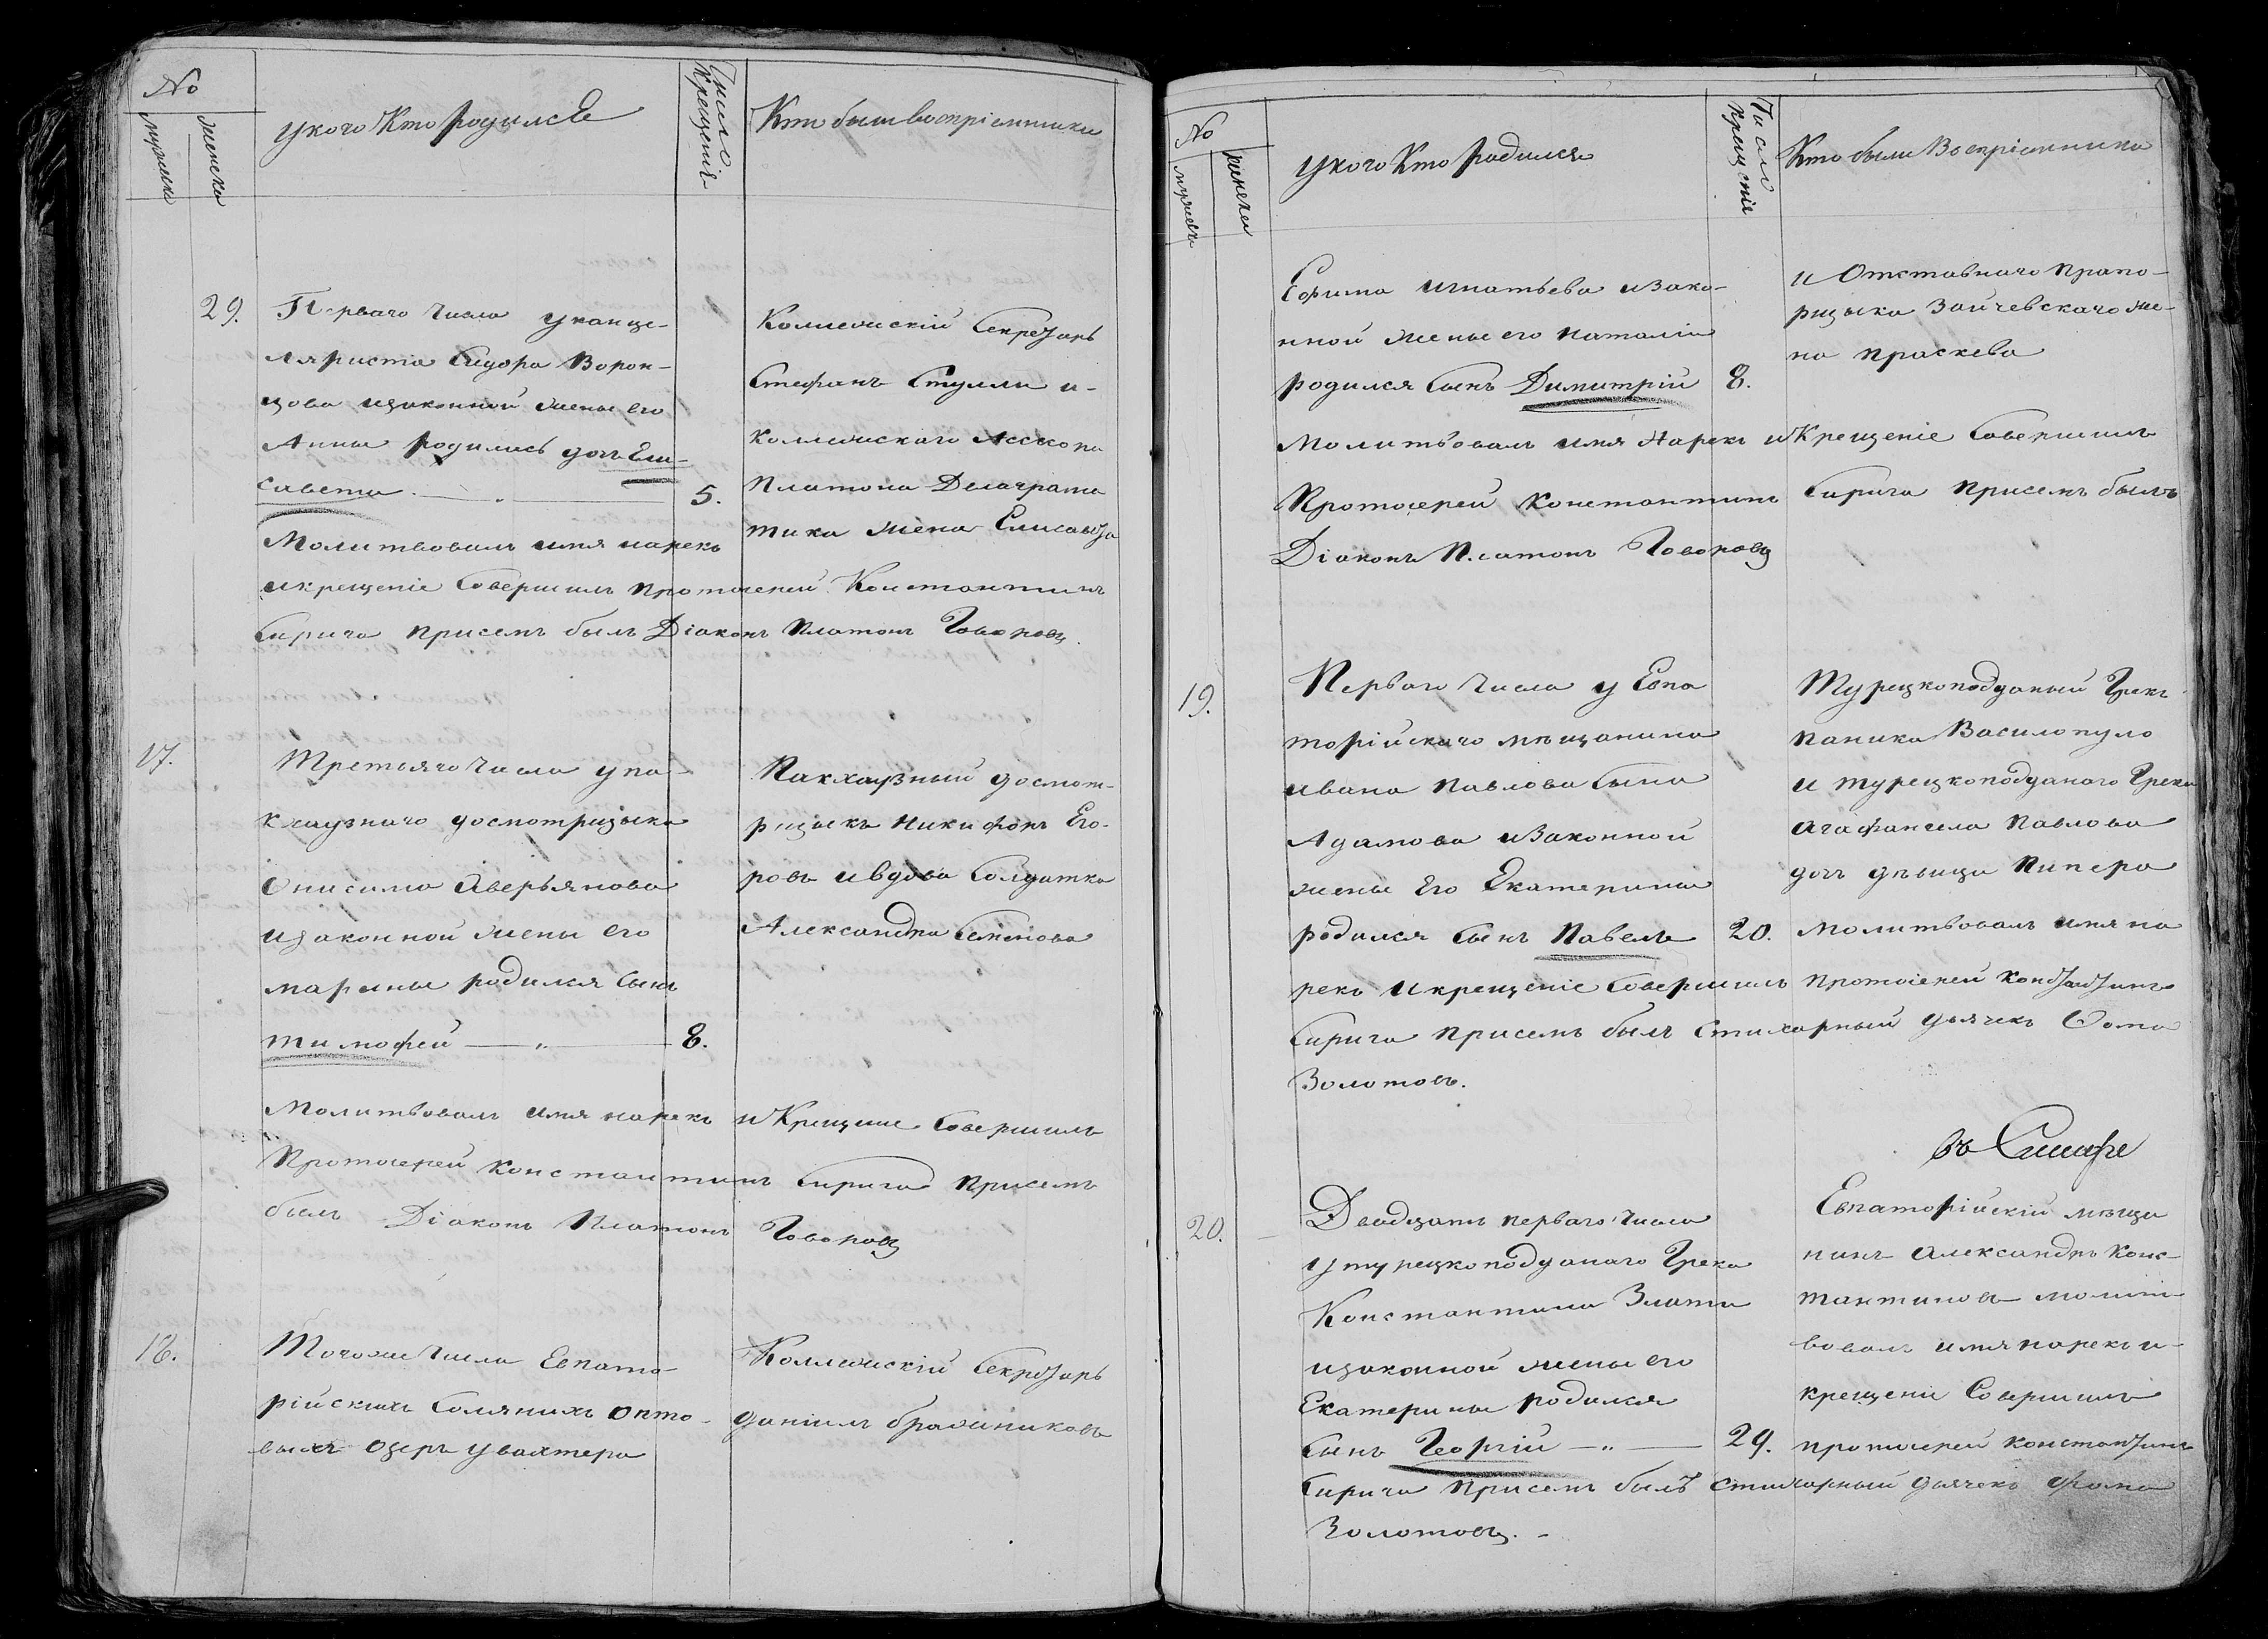 No
мужеска
женска
у кого Кто родилсЕ
Число
Крещенія
Кто были воспріемники
29.
Перваго числа у канце-
ляриста Сидора Ворон-
цова изаконной жены его
Анны родилась дочь Ели-
савета 5.
Молитвовалъ имя нарекъ
икрещеніе Совершилъ протоіерей Константинъ
Сирига присемъ былъ Діаконъ Платонъ Говоровъ.
Коллежскій Секретарь
Стефанъ Стулли и-
Коллежскаго Ассесора
Платона
тика жена Елисавета
17.
Третьяго числа у па-
кхаузнаго досмотрщика
Онисима Аверьянова
изаконной жены его
марины родился Сынъ
тимофей 8.
Пакхаузный досмот-
рщикъ Никифоръ Его-
ровъ ивдова Солдатка
Александра Семенова
Молитвовалъ имя нарекъ иКрещение Совершилъ
Протоіерей Константинъ Сирига Присемъ
былъ Діаконъ Платонъ Говоровъ
18.
Тогоже Числа Евпато-
рійскихъ Соляныхъ опто-
выхъ озеръ увахтера
Коллежскій Секретарь
Даніилъ Бражниковъ
No
мужеск
женска
Укого Кто родился
Число
Крещенія
Кто были Воспріемники
Ефима Игнатьева изако-
нной жены его Наталіи
родился Сынъ Димитрій 8.
и Отставнаго Прапо-
рщыка Зайчевскаго же-
на Праскева
Молитвовалъ имя Нарекъ иКрещеніе Совершилъ
Протоерей Константинъ Сирига Присемъ былъ
Діаконъ Платонъ Говоровъ
19.
Перваго Числа у Евпа
торійскаго мѣщанина
ивана Павлова Сына
Адамова изаконной
жены Его Екатерины
родился Сынъ Павелъ 20.
Турецкоподданый Грекъ
Паника Василопуло
и турецкоподданаго Грека
Агафангела Павлова
дочь дѣвица Пипера
молитвовалъ имя на
рекъ икрещеніе Совершилъ протоіерей Константинъ
Сирига Присемъ былъ Стихарный дьячекъ Фома
Золотовъ.
20.
Двадцать перваго Числа
У турецкоподданаго Грека
Константина Злати
изаконной жены его
Екатерины родился
Сынъ Георгій 29.
Евпаторійскій мѣща
нинъ Александръ Конс-
тантиновъ молит
вовалъ имя нарекъ и-
крещеніе Совершилъ
протоиерей Константинъ
Сирига Присемъ былъ Стихарный дьячекъ Фома
Золотовъ.